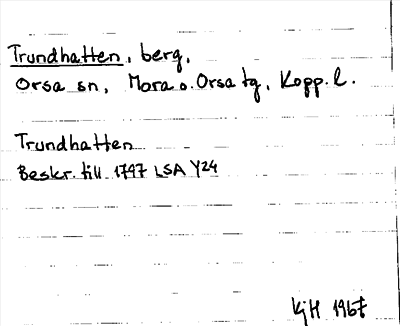 Trundhatten, berg,
Orsa sn, Mora o. Orsa tg, Kopp. l.
Trundhatten
Beskr. till 1797 LSA Y24
KjH 1967